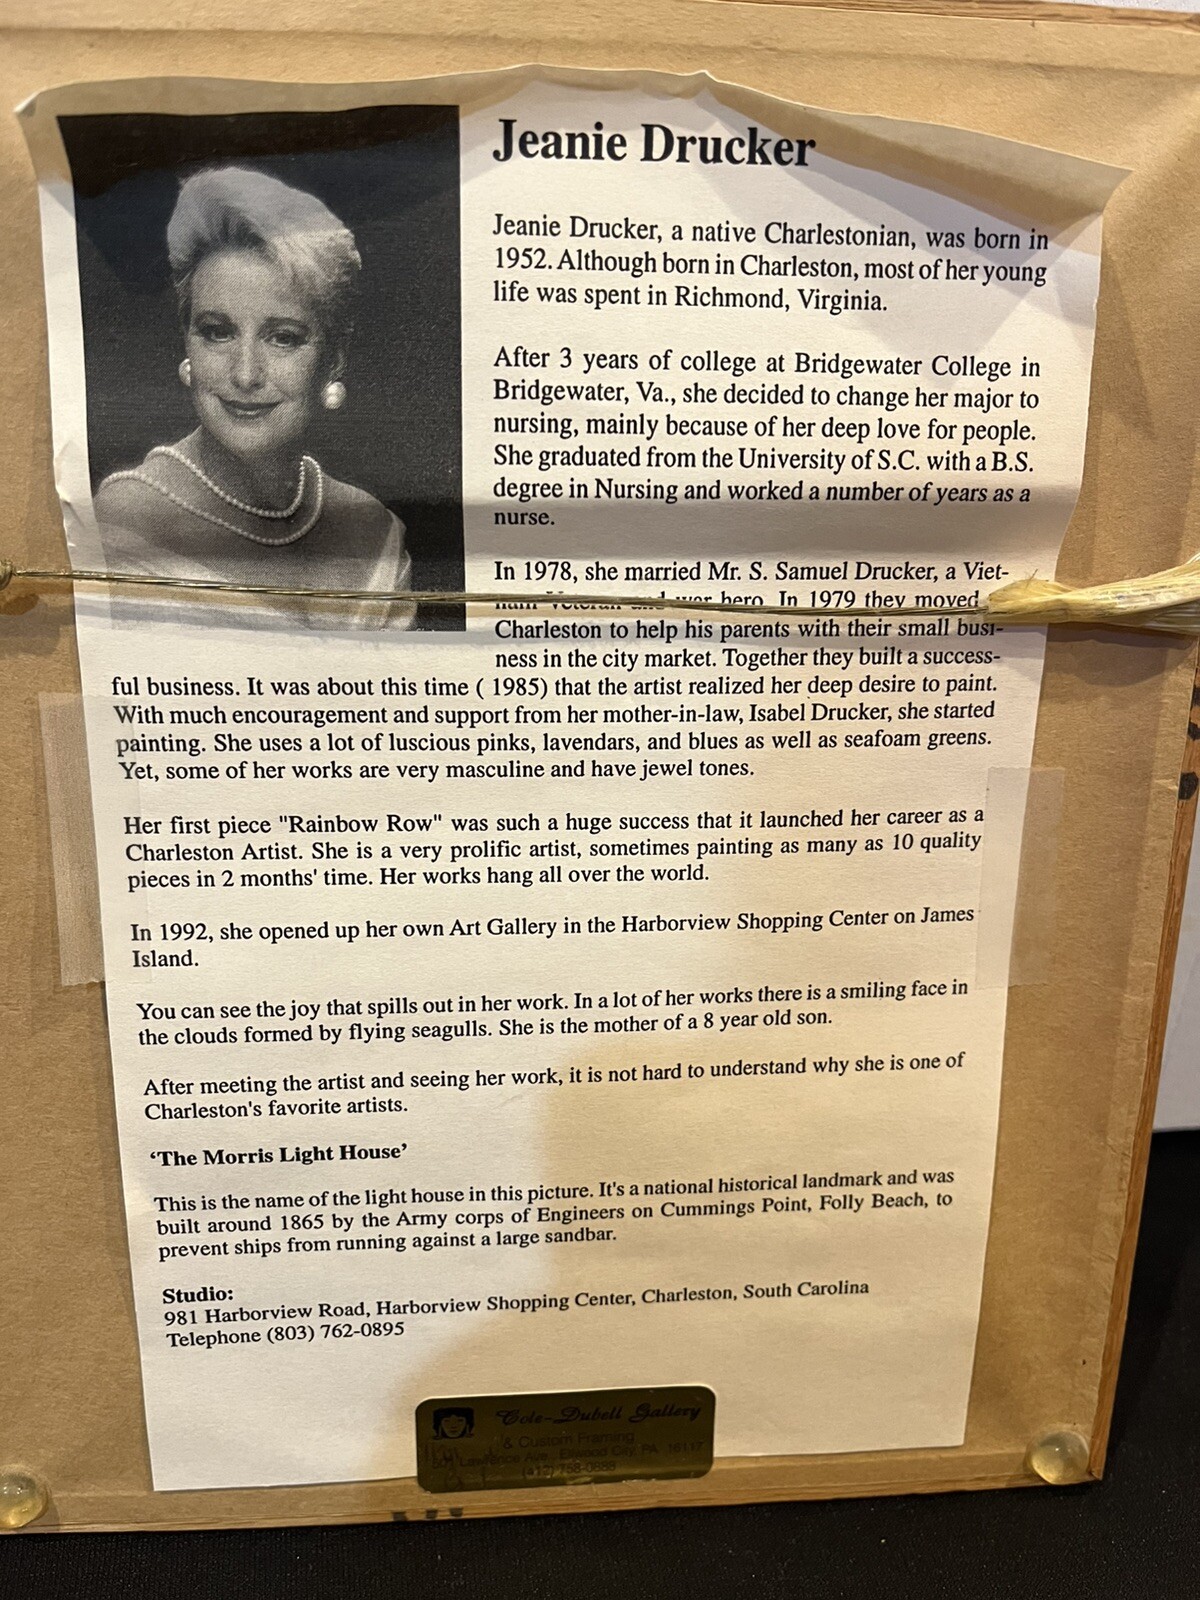 Jeanie Drucker
Jeanie Drucker, a native Charlestonian, was born in
1952. Although born in Charleston, most of her young
life was spent in Richmond, Virginia.
After 3 years of college at Bridgewater College in
Bridgewater, Va., she decided to change her major to
nursing, mainly because of her deep love for people.
She graduated from the University of S.C. with a B.S.
degree in Nursing and worked a number of years as a
nurse.
In 1978, she married Mr. S. Samuel Drucker, a Viet-
nam Veteran and war hero. In 1979 they moved
Charleston to help his parents with their small busi-
ness in the city market. Together they built a success-
ful business. It was about this time ( 1985) that the artist realized her deep desire to paint.
With much encouragement and support from her mother-in-law, Isabel Drucker, she started
painting. She uses a lot of luscious pinks, lavendars, and blues as well as seafoam greens.
Yet, some of her works are very masculine and have jewel tones.
Her first piece "Rainbow Row" was such a huge success that it launched her career as a
Charleston Artist. She is a very prolific artist, sometimes painting as many as 10 quality
pieces in 2 months' time. Her works hang all over the world.
In 1992, she opened up her own Art Gallery in the Harborview Shopping Center on James
Island.
You can see the joy that spills out in her work. In a lot of her works there is a smiling face in
the clouds formed by flying seagulls. She is the mother of a 8 year old son.
After meeting the artist and seeing her work, it is not hard to understand why she is one of
Charleston's favorite artists.
‘The Morris Light House’
This is the name of the light house in this picture. It's a national historical landmark and was
built around 1865 by the Army corps of Engineers on Cummings Point, Folly Beach, to
prevent ships from running against a large sandbar.
Studio:
981 Harborview Road, Harborview Shopping Center, Charleston, South Carolina
Telephone (803) 762-0895
Cole-Dubell Gallery
& Custom Framing
Lawrence Ave., Ellwood City, PA 16117
(412) 758-0888